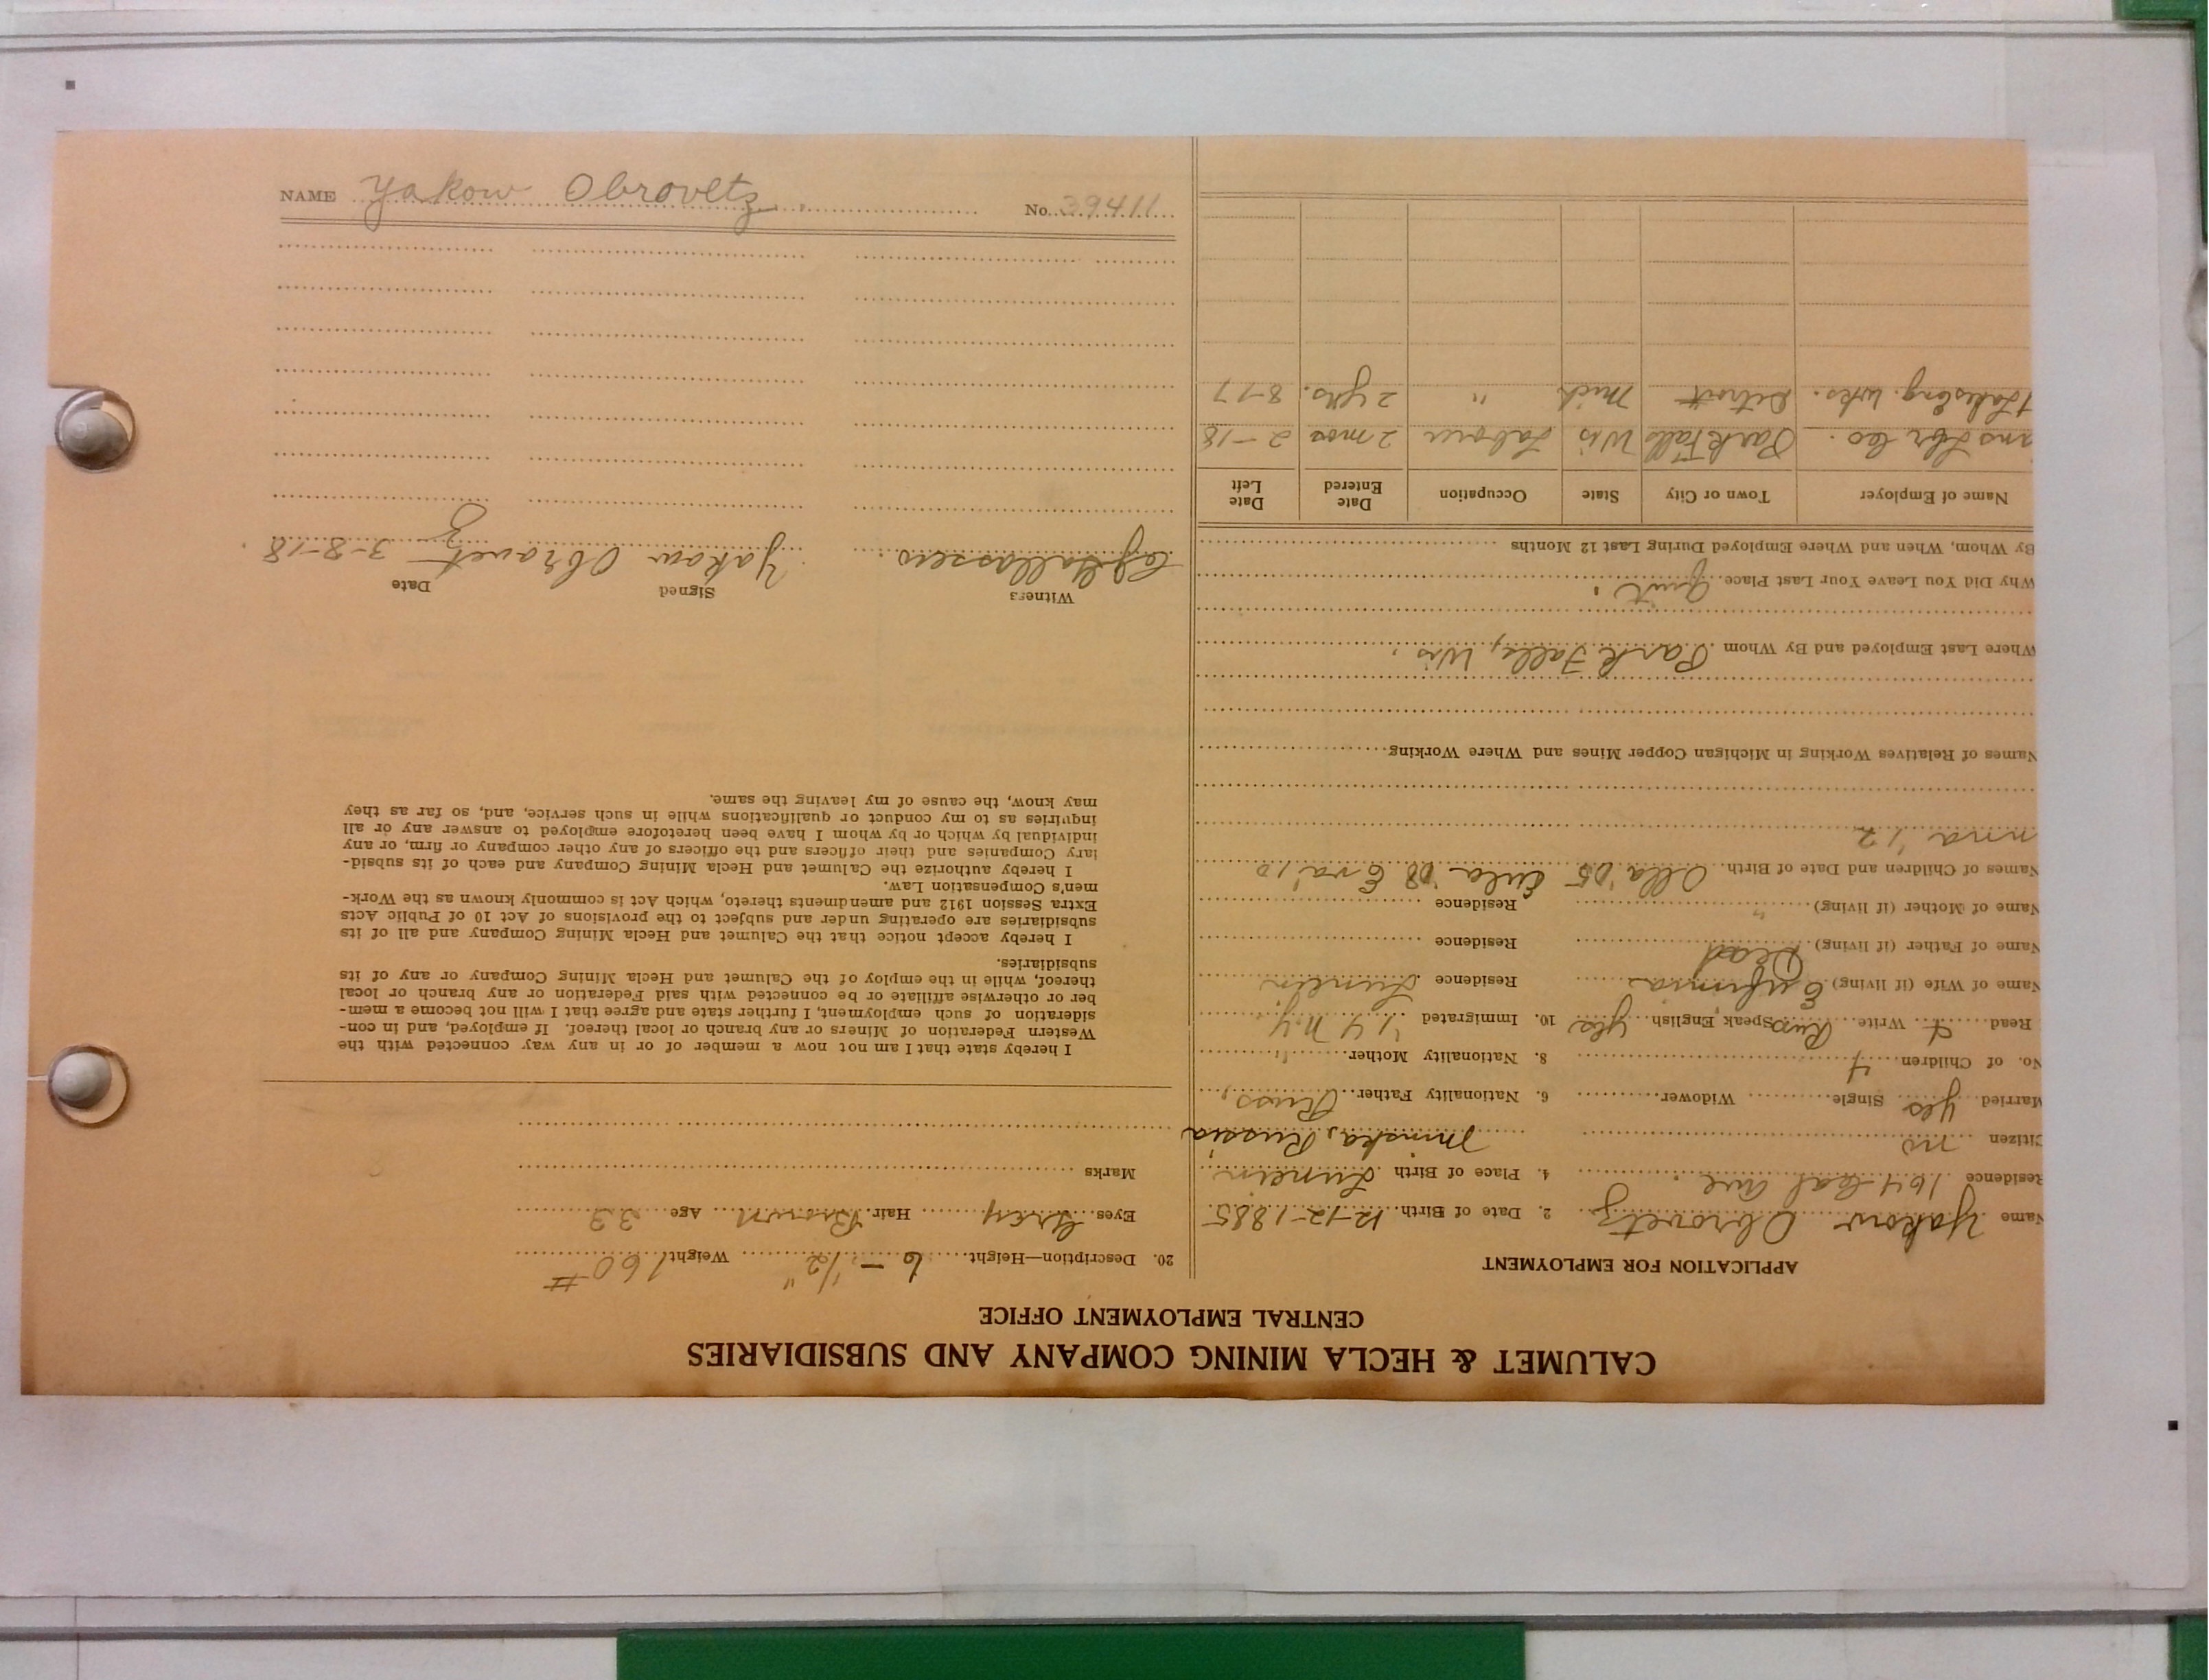 CALUMET & HECLA MINING COMPANY AND SUBSIDIARIES
CENTRAL EMPLOYMENT OFFICE
APPLICATION FOR EMPLOYMENT
Name Yakow Obrovetz 2. Date of Birth 12-12-1885
Residence 164 Coal Ave. 4. Place of Birth Lunein
Citizen no Minska, Russia
Married yes Single Widower 6. Nationality Father Russ,
No. of Children 4 8. Nationality Mother "
Read Write Russ Speak English yes 10. Immigrated '14 N.Y.
Name of Wife (if living) Eufimia Residence Lunein
Name of Father (if living) Dead Residence
Name of Mother (if living) " Residence
Names of Children and Date of Birth. Olla '05 Eula '08 Eva '10
nna '12
Names of Relatives Working in Michigan Copper Mines and Where Working
Where Last Employed and By Whom Park Falls, Wis.
Why Did You Leave Your Last Place quit.
By Whom, When and Where Employed During Last 12 Months
Name of Employer Town or City State Occupation Date Entered Date Left
Lbr Co. Park Falls Wis Laborer 2 mos 2-18
Eng. Wks. Detroit Mich " 2 yrs. 8-17
20. Description—Height 6 - 1/2" Weight 160 #
Eyes Grey Hair Brown Age 33
Marks
I hereby state that I am not now a member of or in any way connected with the
Western Federation of Miners or any branch or local thereof. If employed, and in con-
sideration of such employment, I further state and agree that I will not become a mem-
ber or otherwise affiliate or be connected with said Federation or any branch or local
thereof, while in the employ of the Calumet and Hecla Mining Company or any of its
subsidiaries.
I hereby accept notice that the Calumet and Hecla Mining Company and all of its
subsidiaries are operating under and subject to the provisions of Act 10 of Public Acts
Extra Session 1912 and amendments thereto, which Act is commonly known as the Work-
men's Compensation Law.
I hereby authorize the Calumet and Hecla Mining Company and each of its subsid-
iary Companies and their officers and the officers of any other company or firm, or any
individual by which or by whom I have been heretofore employed to answer any or all
inquiries as to my conduct or qualifications while in such service, and, so far as they
may know, the cause of my leaving the same.
Witness Signed Date
Yakow Obrovetz 3-8-18
NAME Yakow Obrovetz No. 39411